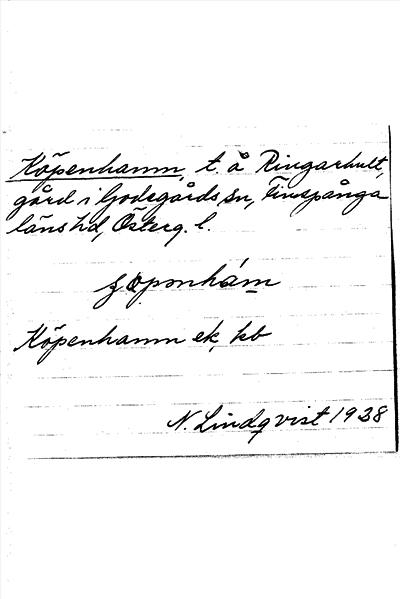 Köpenhamn, t. å Ringarhult,
gård i Godegårds sn, Finspånga
läns hd, Österg. l.
Köpenhamn ek, kb
N. Lindqvist 1938